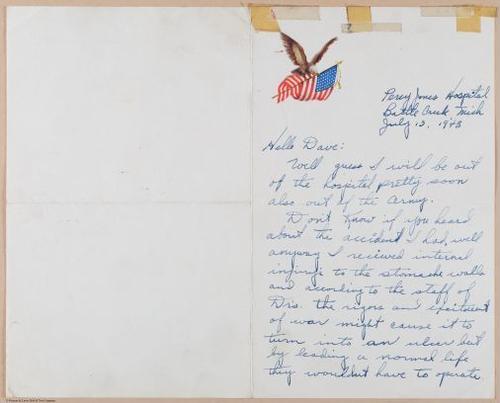 Percy Jones Hospital
Battle Creek Mich
July 13, 1943
Hello Dave:
Well guess I will be out
of the hospital pretty soon
also out of the Army.
Don't know if you heard
about the accident I had, well
anyway I recieved internal
injurys to the stomache walls
and according to the staff of
Drs. the rigors and excitment
of war might cause it to
turn into an ulcer but
by leading a normal life
they wouldnt have to operate.